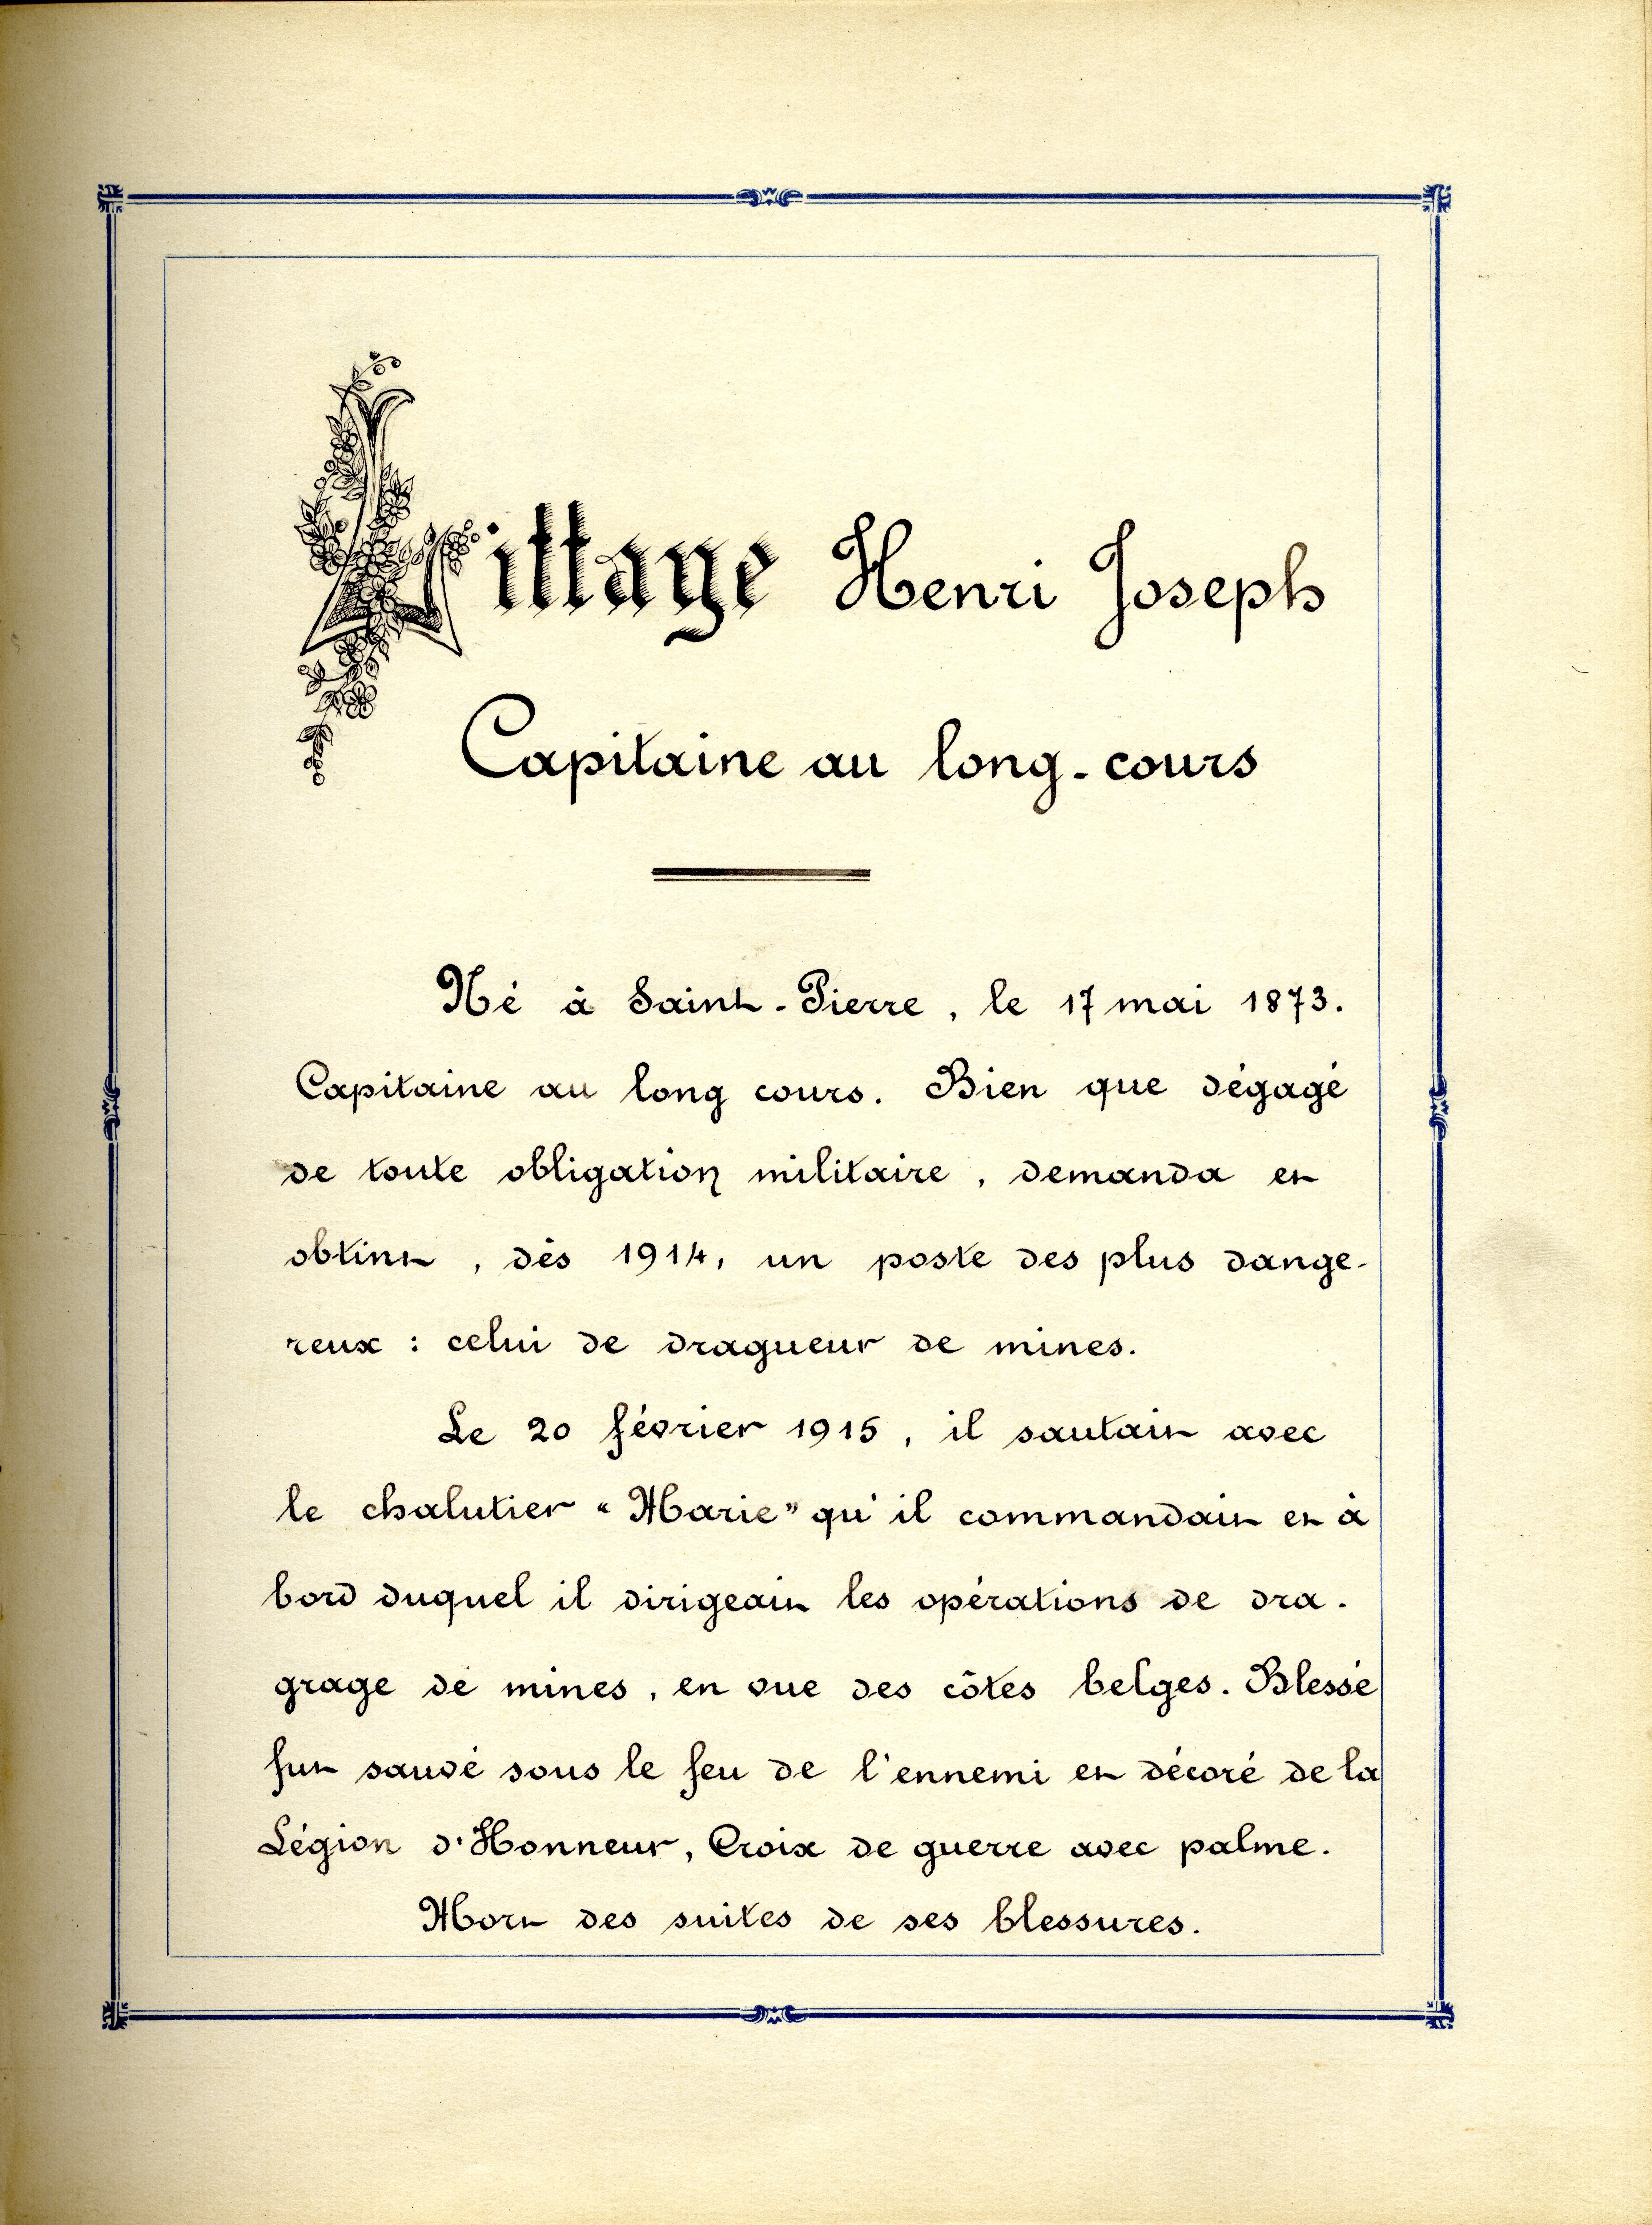 Littaye Henri Joseph
Capitaine au long-cours
Né à Saint-Pierre, le 17 mai 1873.
Capitaine au long cours. Bien que dégagé
de toute obligation militaire, demanda et
obtint, dès 1914, un poste des plus dange-
reux : celui de dragueur de mines.
Le 20 février 1915, il sautait avec
le chalutier "Marie" qu'il commandait et à
bord duquel il dirigeait les opérations de dra-
grage de mines, en vue des côtes belges. Blessé
fut sauvé sous le feu de l'ennemi et décoré de la
Légion d'Honneur, Croix de guerre avec palme.
Mort des suites de ses blessures.